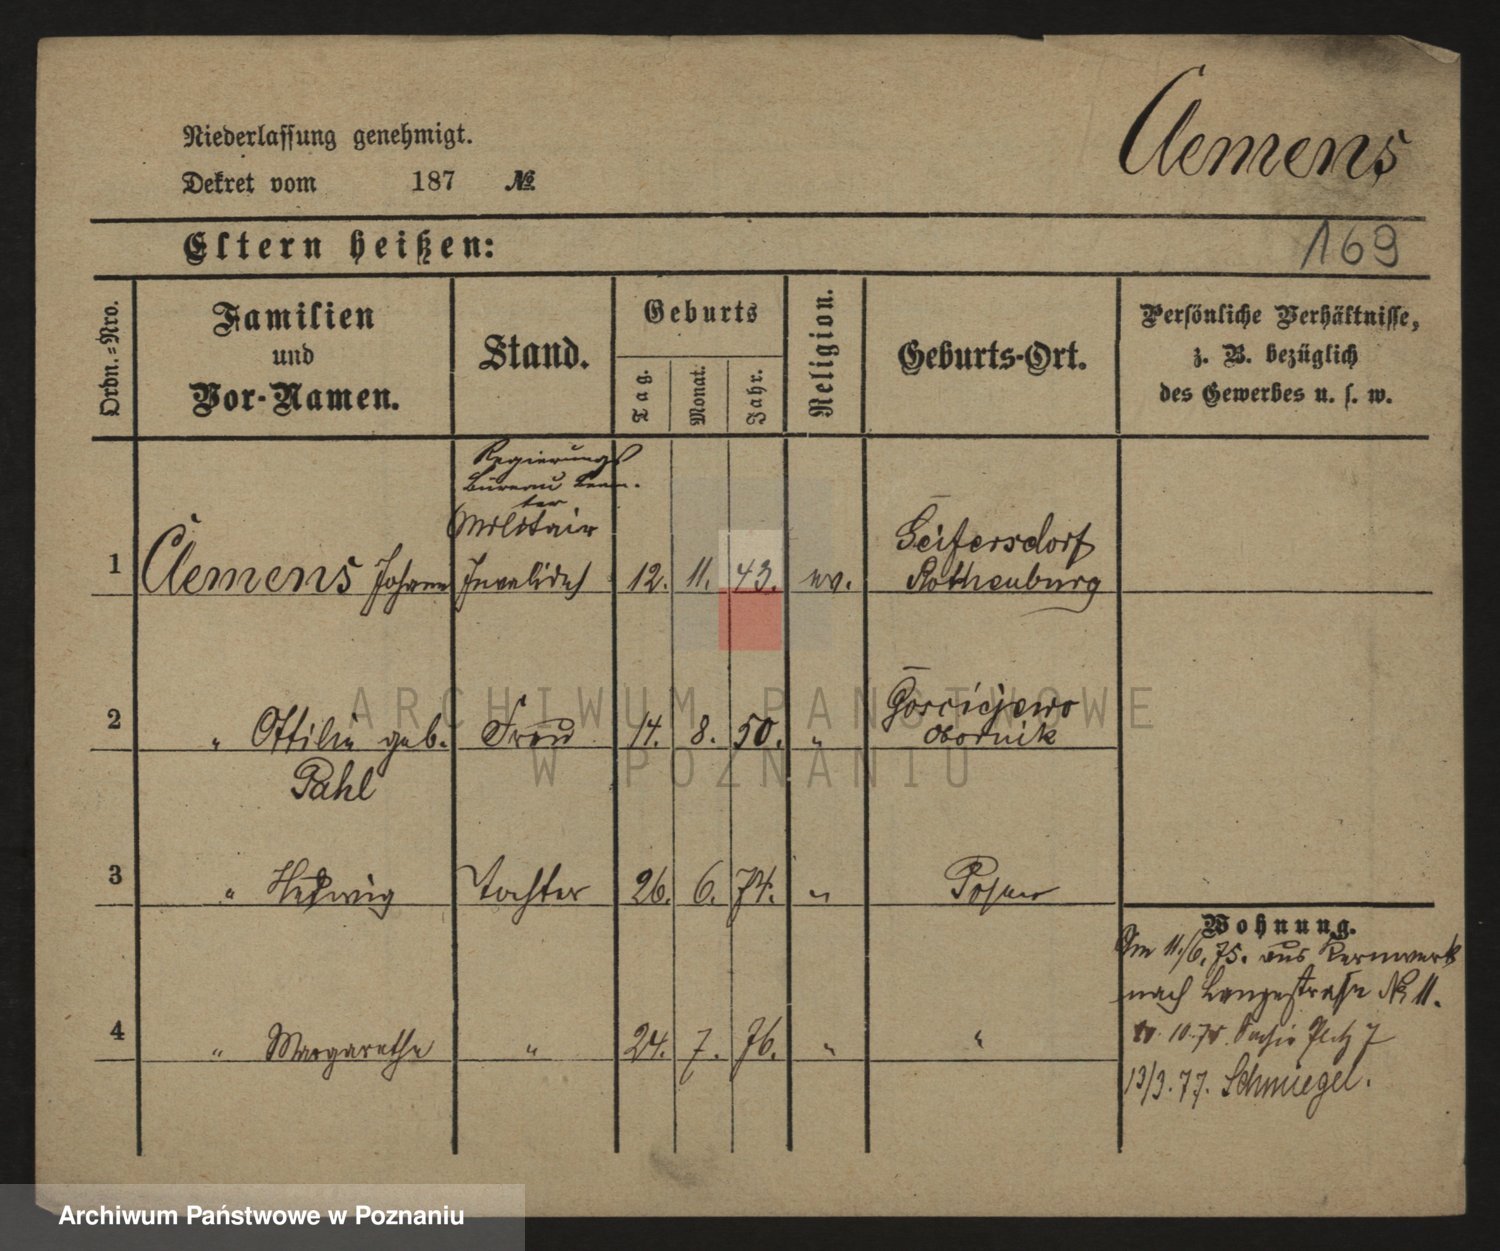 Clemens
Niederlassung genehmigt.
Dekret vom 187 №
Eltern heißen:
169
Ordn.=Nro.
Familien
und
Vor-Namen.
Stand.
Geburts
Tag.
Monat.
Jahr.
Religion.
Geburts-Ort.
Persönliche Verhältnisse,
z. B. bezüglich
des Gewerbes u. s. w.
Regierungs
Büreau Beam-
ter
Militair
1 Clemens Johann Invalide 12. 11. 43. ev. Geifersdorf
Rothenburg
2 " Ottilie geb. Frau 14. 8. 50. "
Obornik
Pahl
3 " Hedwig Tochter 26. 6. 74. " Posen
Wohnung.
Am 11/6. 75. aus Kernwerk
nach Langestraße № 11.
4 " Margarethe " 24. 7. 76. " "
10. Platz 7
13/3. 77. Schmiegel.
ARCHIWUM PAŃSTWOWE
W POZNANIU
Archiwum Państwowe w Poznaniu